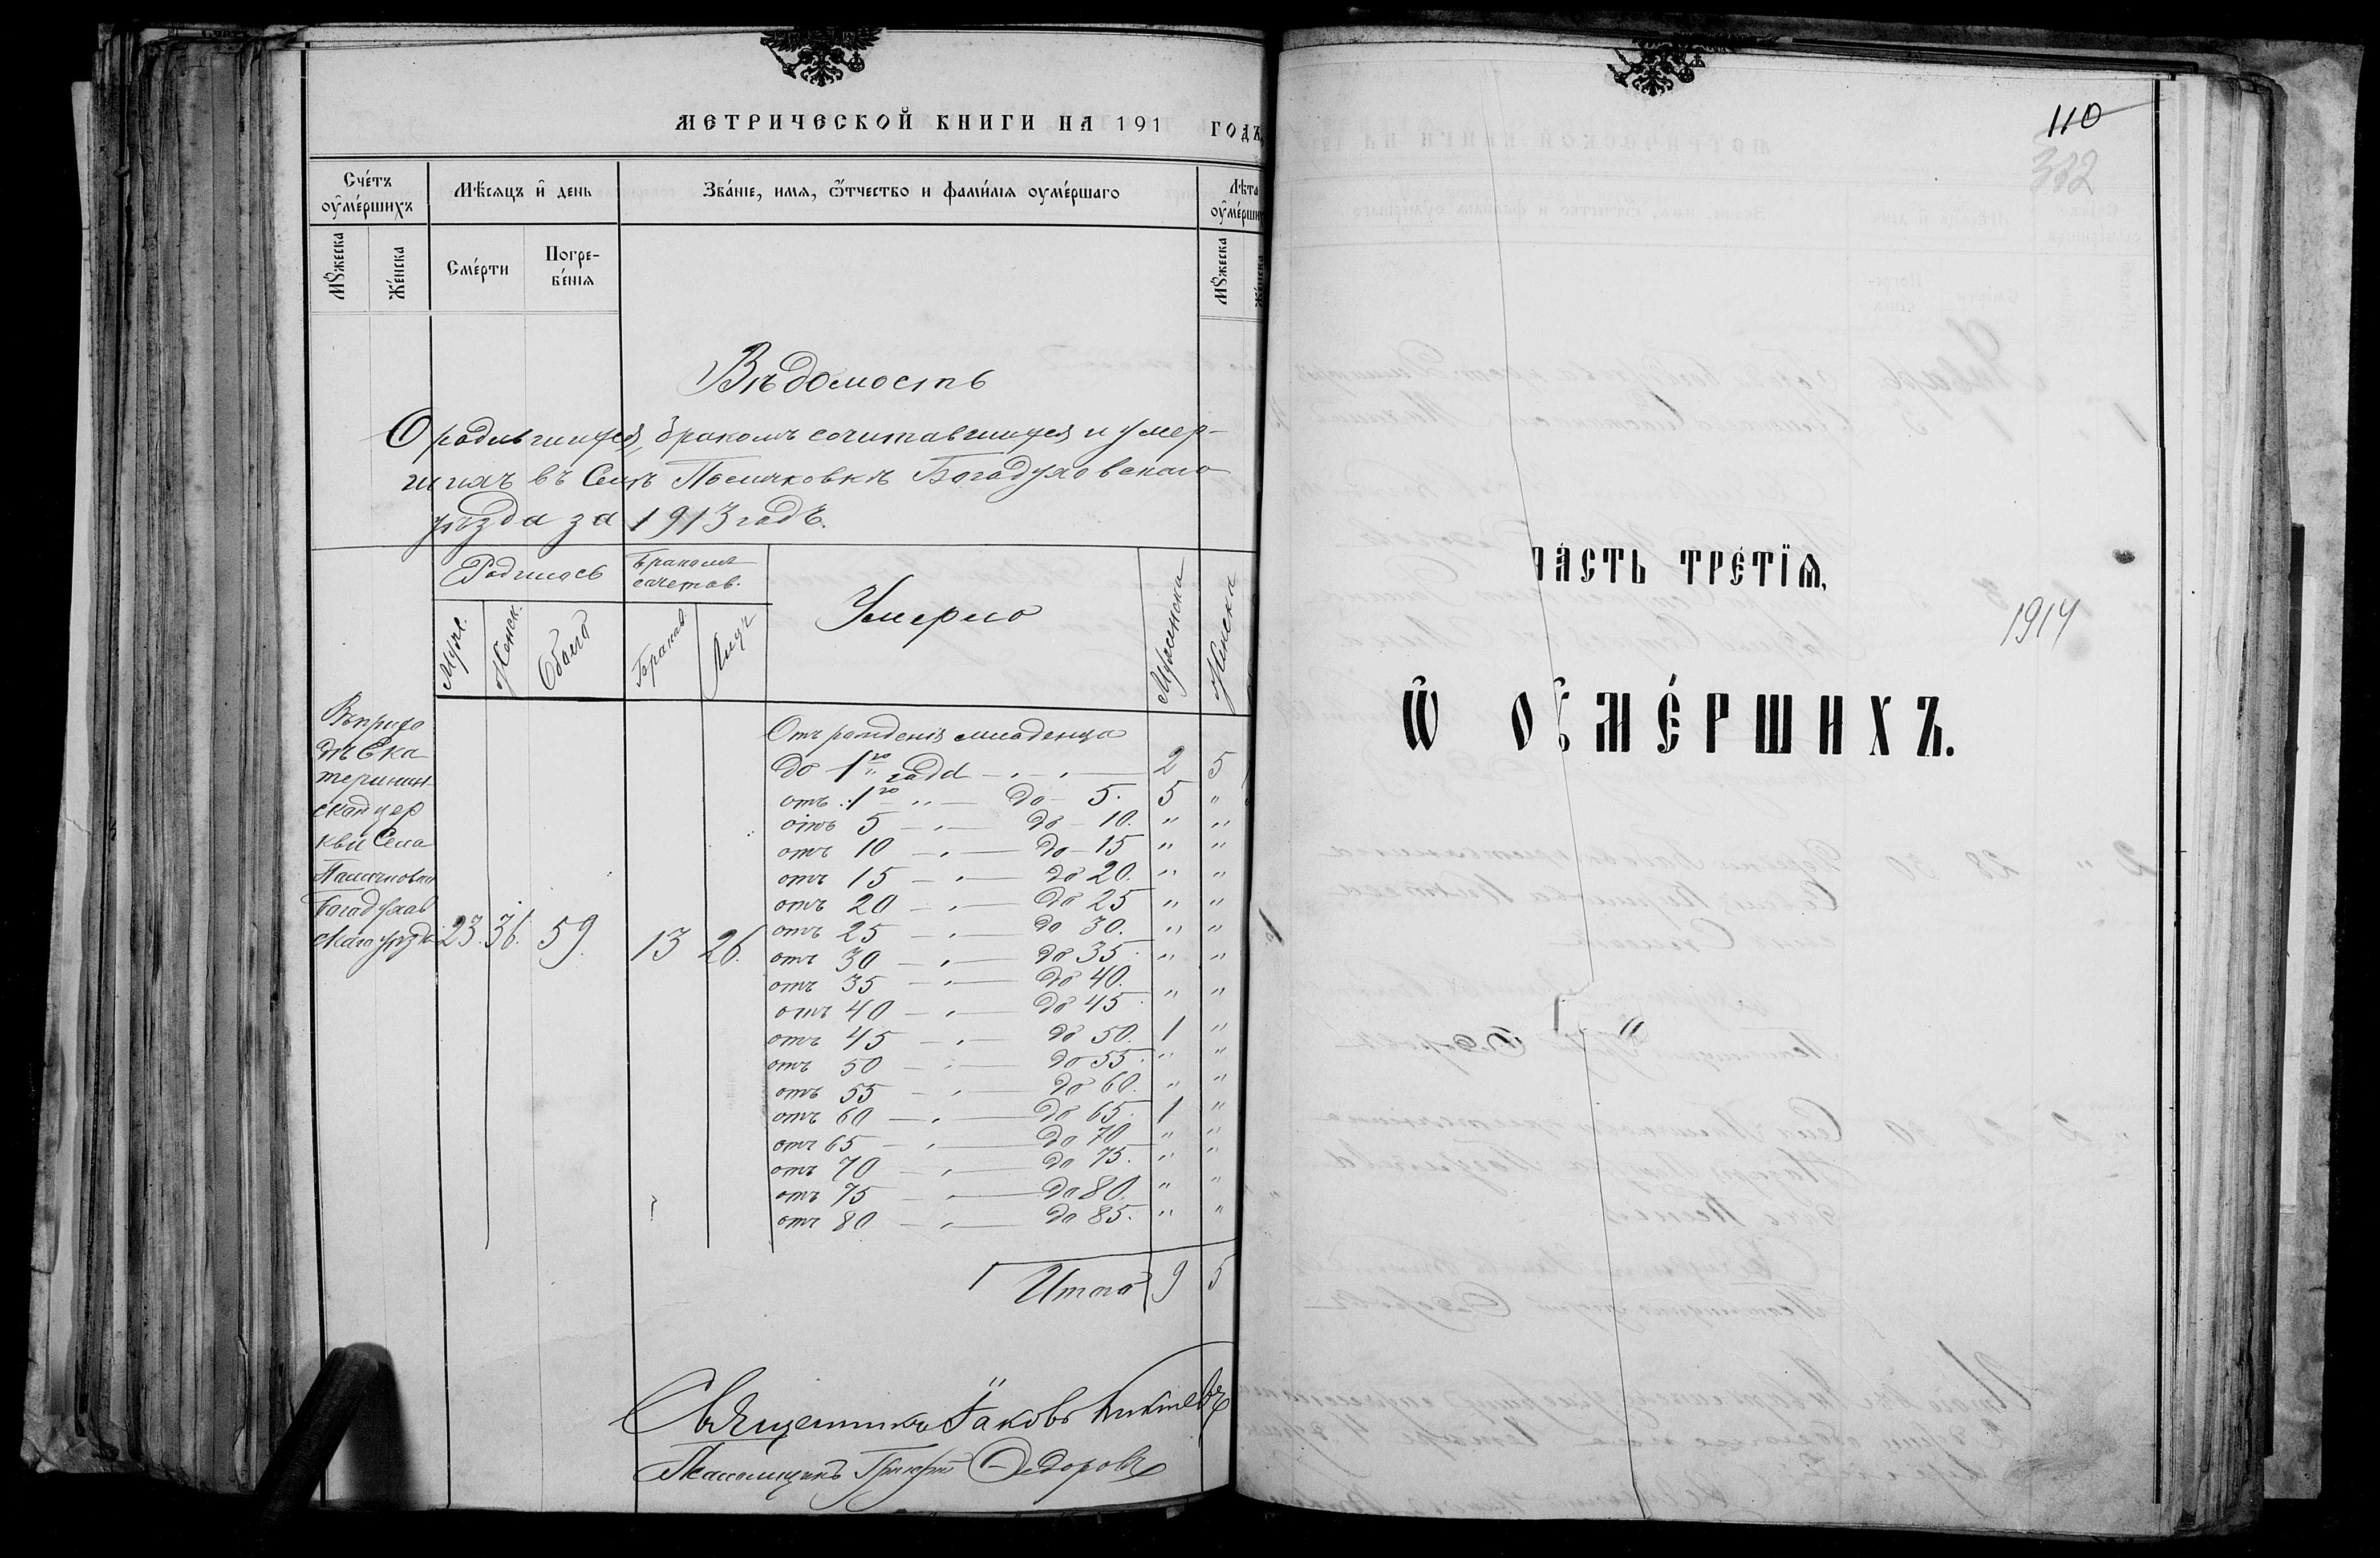 МЕТРИЧЕСКОЙ КНИГИ НА 191 ГОДЪ,
Сче́тъ ᲂу҆ме́ршихъ
Мѣ́сяцъ и҆ день
Зва́нїе, имя, ѿтчество и фами́лїя ᲂуме́ршаго
Лѣта ᲂу҆ме́рши
Мꙋ́жеска
Же́нска
Сме́рти
Погре-
бе́нїя
Мꙋ́жеска
Же́нска
Вѣдомость
О родившихся, бракомъ сочитавшихся и умер-
шихъ въ Селѣ Павлюковкѣ Богодуховскаго
уѣзда за 1913 годъ.
Родилось
Бракомъ
сочетав.
Умерло
Мужеска
Женска
Муж.
Женск.
Обоего
Браковъ
Лицъ
Въ прихо
дѣ Ека
теринин
ской цер
кви Села
Богодухов
скаго уѣзда
23. 36. 59. 13 26.
Отъ рожденія младенца
до 1го года 2 5
отъ 1го — " — до — 5. 5 "
отъ 5 — " — до — 10. " "
отъ 10 — " — до — 15 " "
отъ 15 — " — до 20. " "
отъ 20 — " — до 25 " "
отъ 25 — " — до 30. " "
отъ 30 — " — до 35 " "
отъ 35 — " — до 40.
отъ 40 — " — до 45 " "
отъ 45 — " — до 50. 1 "
отъ 50 — " — до 55. " "
отъ 55 — " — до 60. " "
отъ 60 — " — до 65. 1 "
отъ 65 — " — до 70 " "
отъ 70 — " — до 75. " "
отъ 75 — " — до 80. " "
отъ 80 — " — до 85. " "
Итого 9 5
Священникъ Іаковъ
Псаломщикъ Григорій Ѳедоровъ
110
332
ЧА́СТЬ ТРЕ́ТЇѦ,
1914
Ѿ ОУ҆МЕ́РШИХЪ.